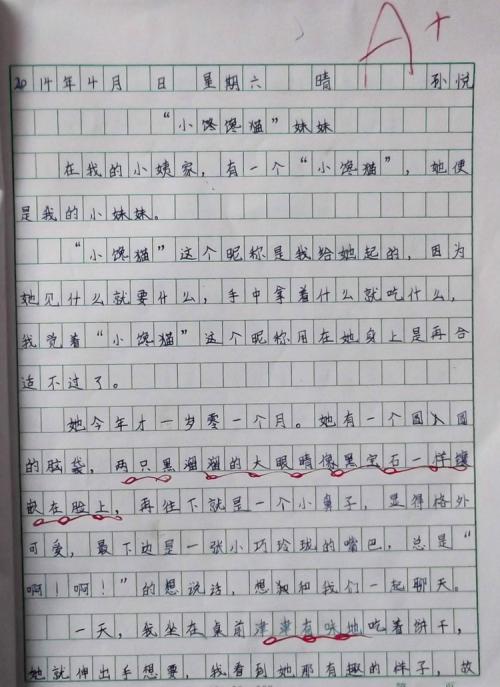 A+
2014年4月 日 星期六 晴 孙悦
“小馋馋猫”妹妹
在我的小姨家，有一个“小馋猫”，她便
是我的小妹妹。
“小馋猫”这个昵称是我给她起的，因为
她见什么就要什么，手中拿着什么就吃什么，
我觉着“小馋猫”这个昵称用在她身上是再合
适不过了。
她今年才一岁零一个月。她有一个圆圆
的脑袋，两只黑溜溜的大眼睛像黑宝石一样镶
嵌在脸上，再往下就是一个小鼻子，显得格外
可爱，最下边是一张小巧玲珑的嘴巴，总是“
啊！啊！”的想说话，想和我们一起聊天。
一天，我坐在桌前津津有味地吃着饼干，
她就伸出手想要，我看到她那有趣的样子，故